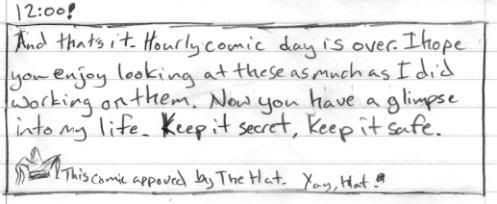 12:00!
And that's it. Hourly comic day is over. I hope
you enjoy looking at these as much as I did
working on them. Now you have a glimpse
into my life. Keep it secret, keep it safe.
This comic appoved by The Hat. Yay, Hat!